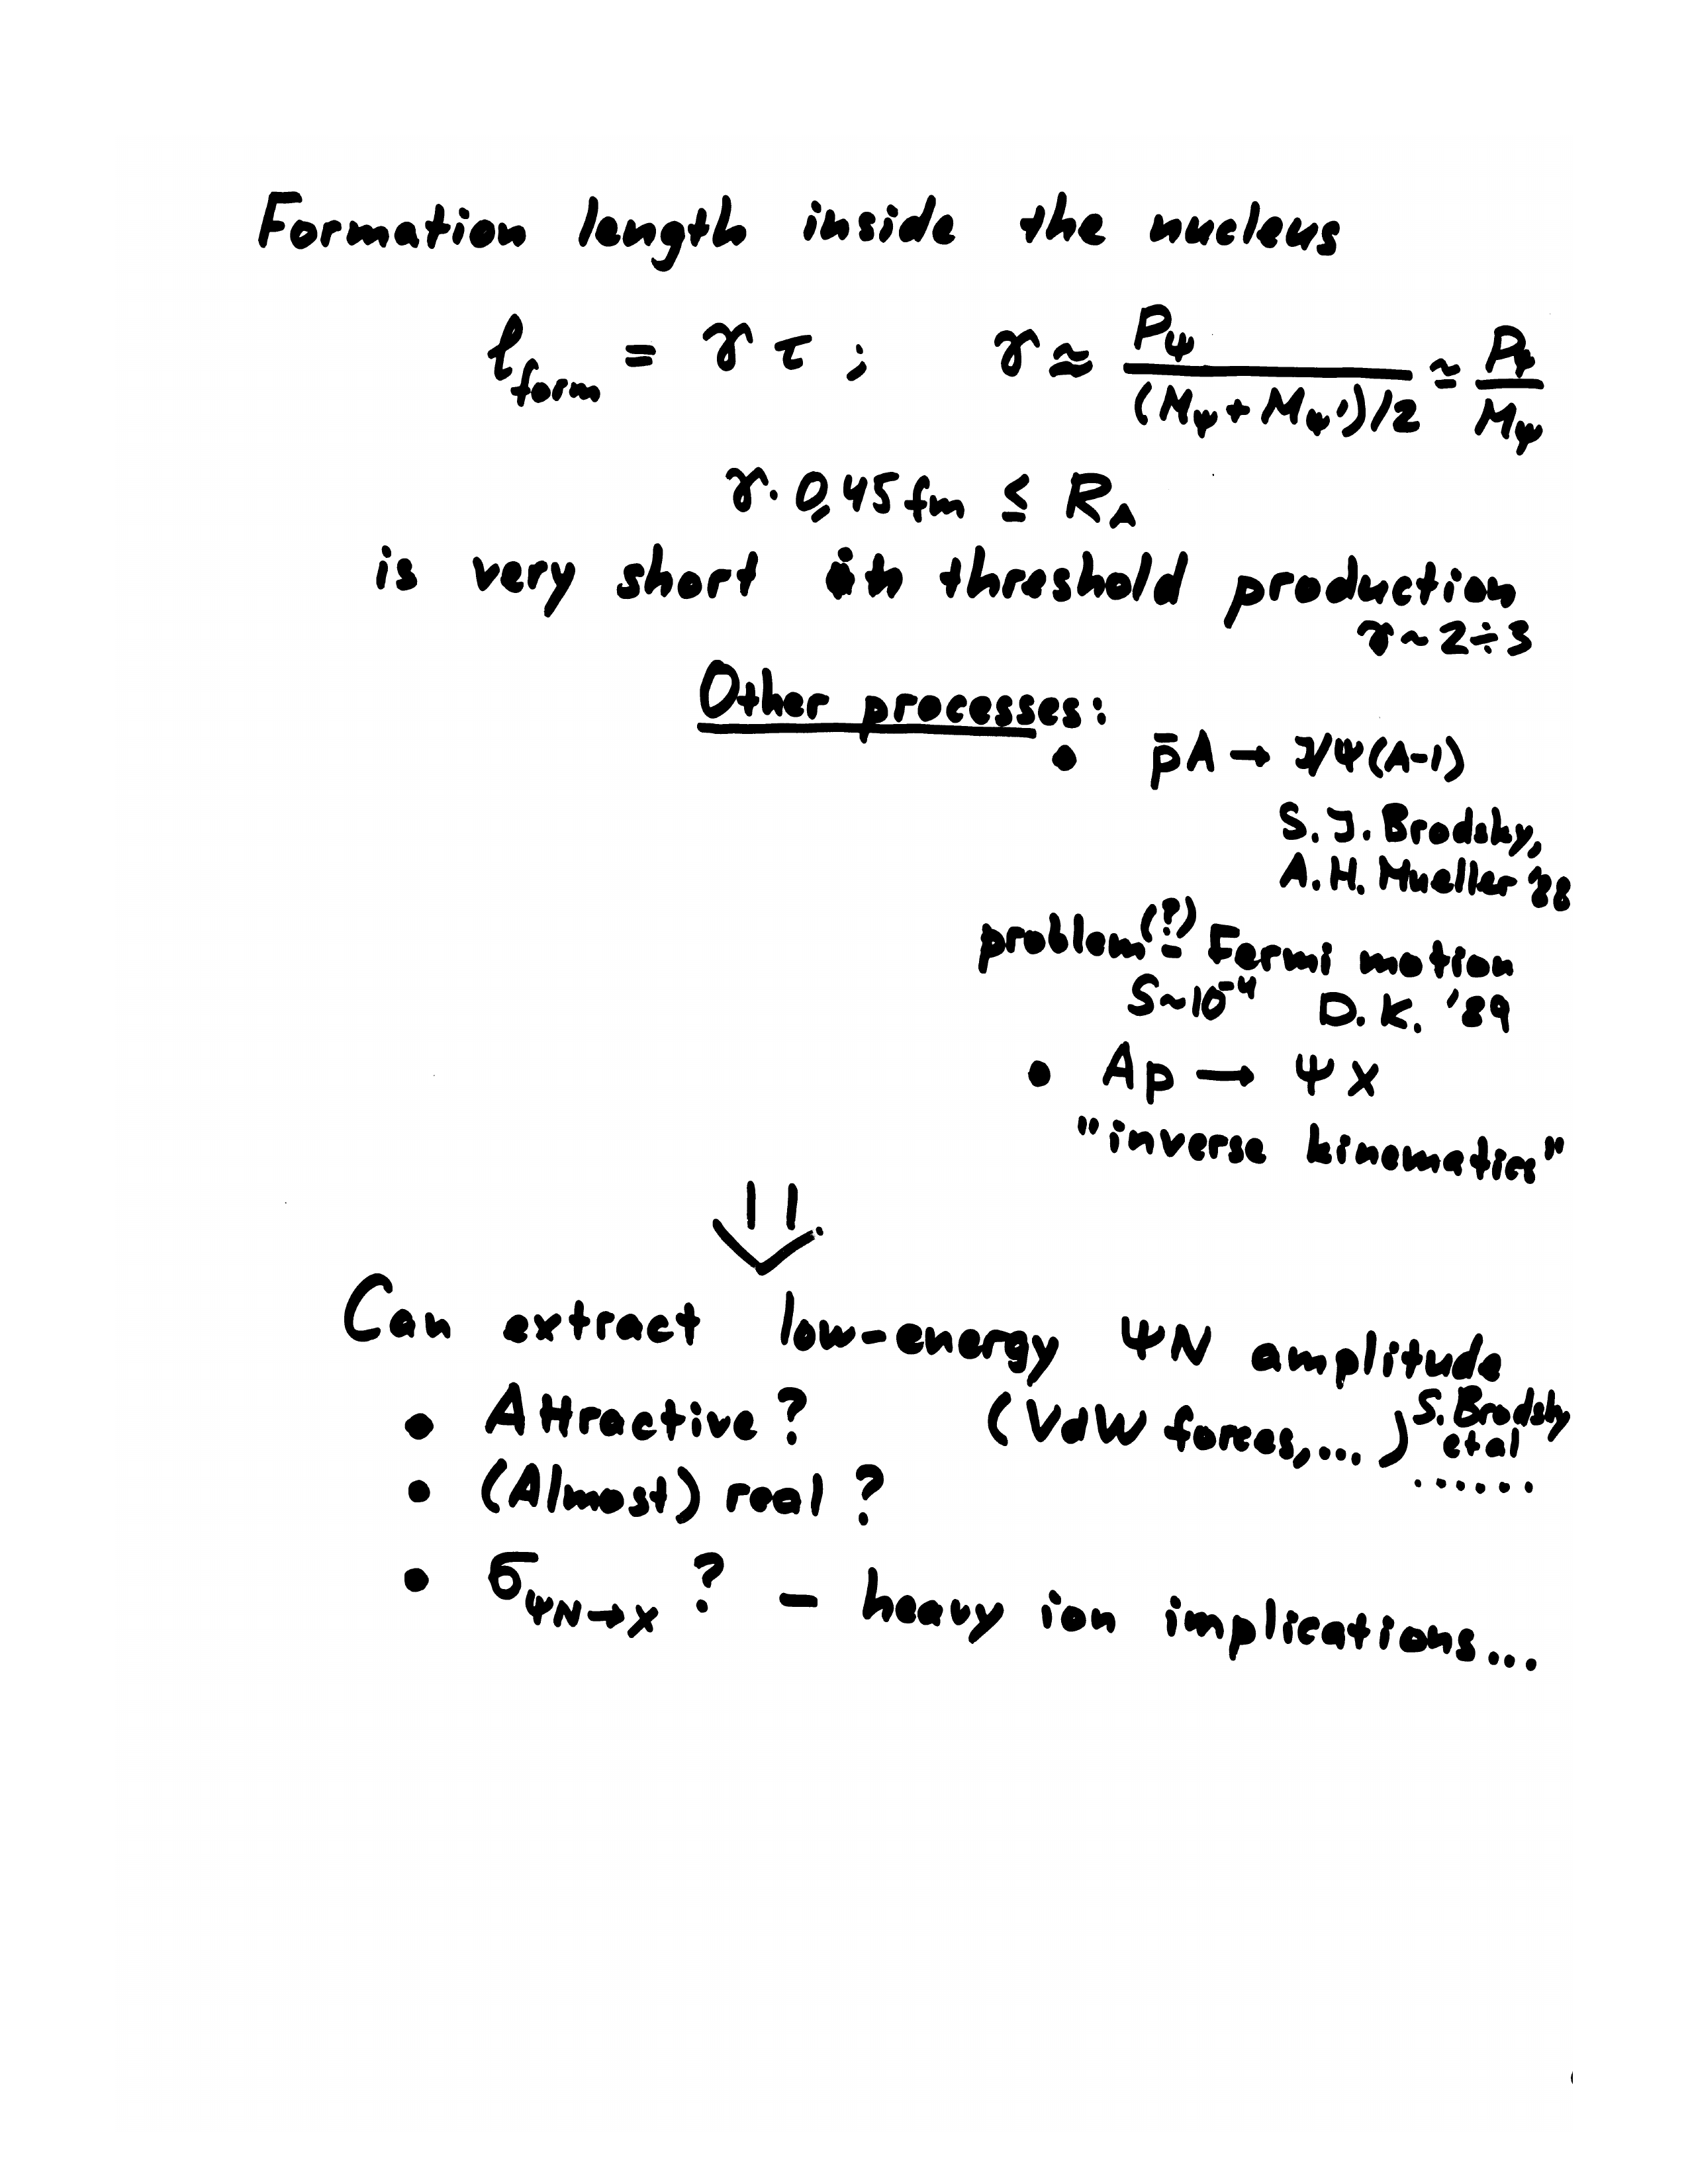 Formation length inside the nucleus
ℓ_form = γ τ ; γ ≃ P_ψ / ((M_ψ + M_ψ')/2) ≃ P_ψ / M_ψ
γ · 0,45 fm ≤ R_A
is very short in threshold production
γ ~ 2 ÷ 3
Other processes:
• p̄A → J/Ψ (A-1)
S. J. Brodsky,
A. H. Mueller '88
problem(?) - Fermi motion
S ~ 10^-4 D. K. '89
• Ap → Ψ X
"inverse kinematics"
⇓
Can extract low-energy ΨN amplitude
• Attractive? (VdW forces, ... ) S. Brodsky
et al
......
• (Almost) real ?
• σ_ΨN→X ? – heavy ion implications...